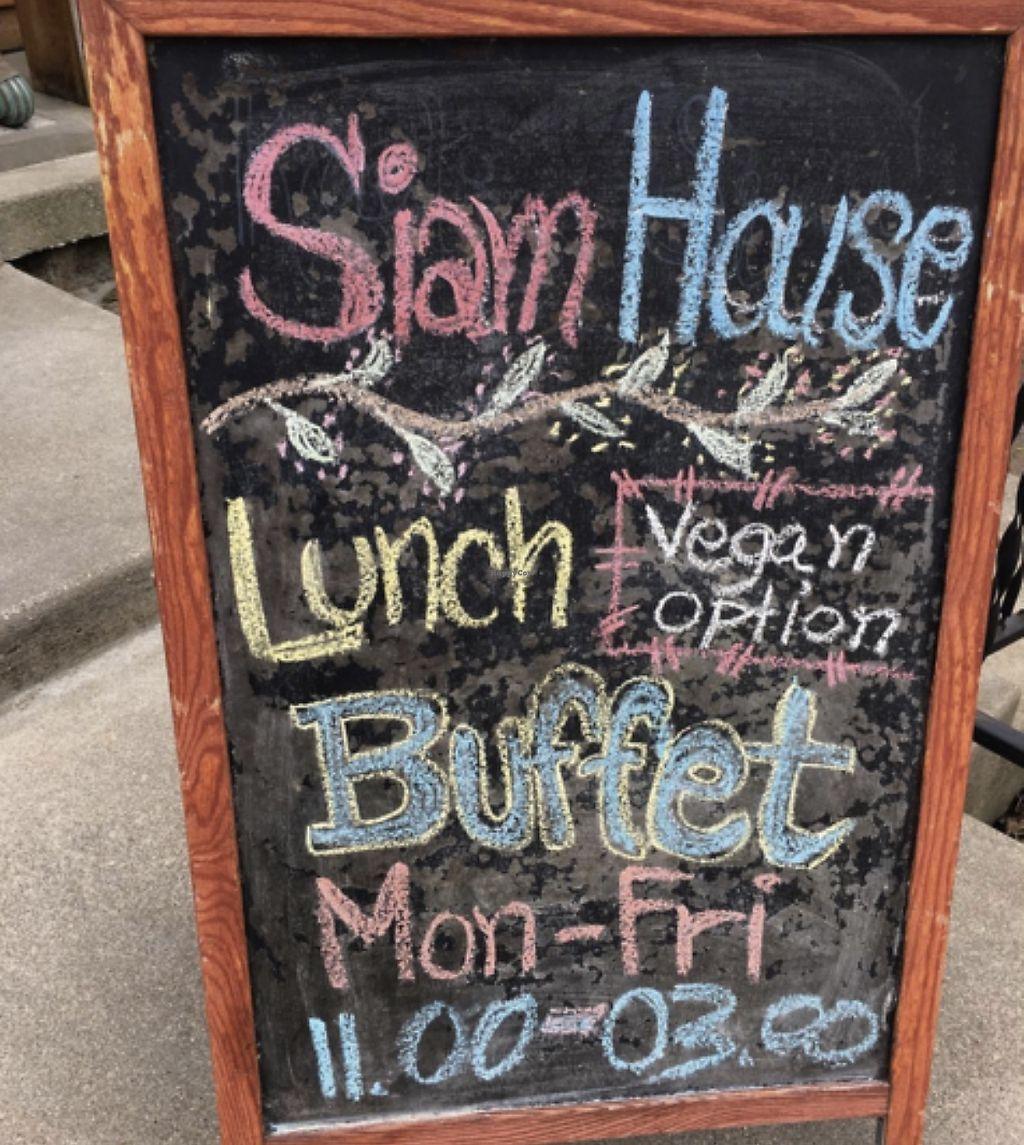 Siam House
Lunch
Vegan
option
Buffet
Mon-Fri
11.00-03.00